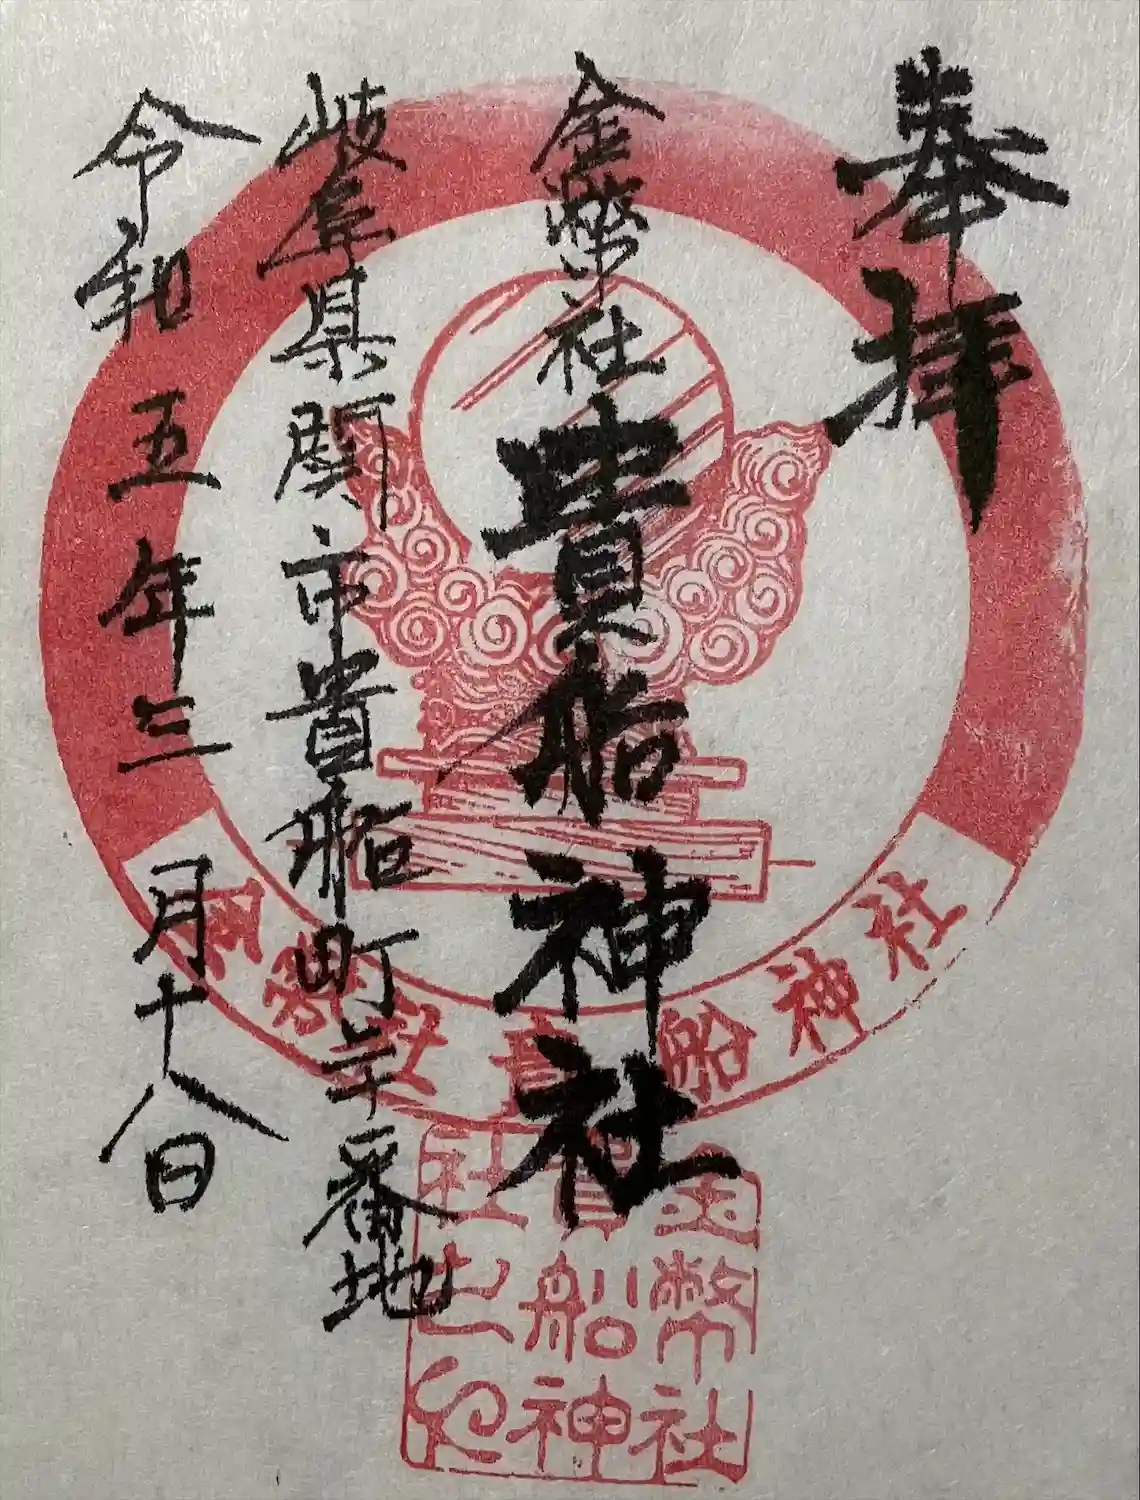 奉拝
金幣社 貴船神社
岐阜県関市貴船町二十番地
令和五年三月十八日
金幣社貴船神社
金幣社
貴船神
社之印